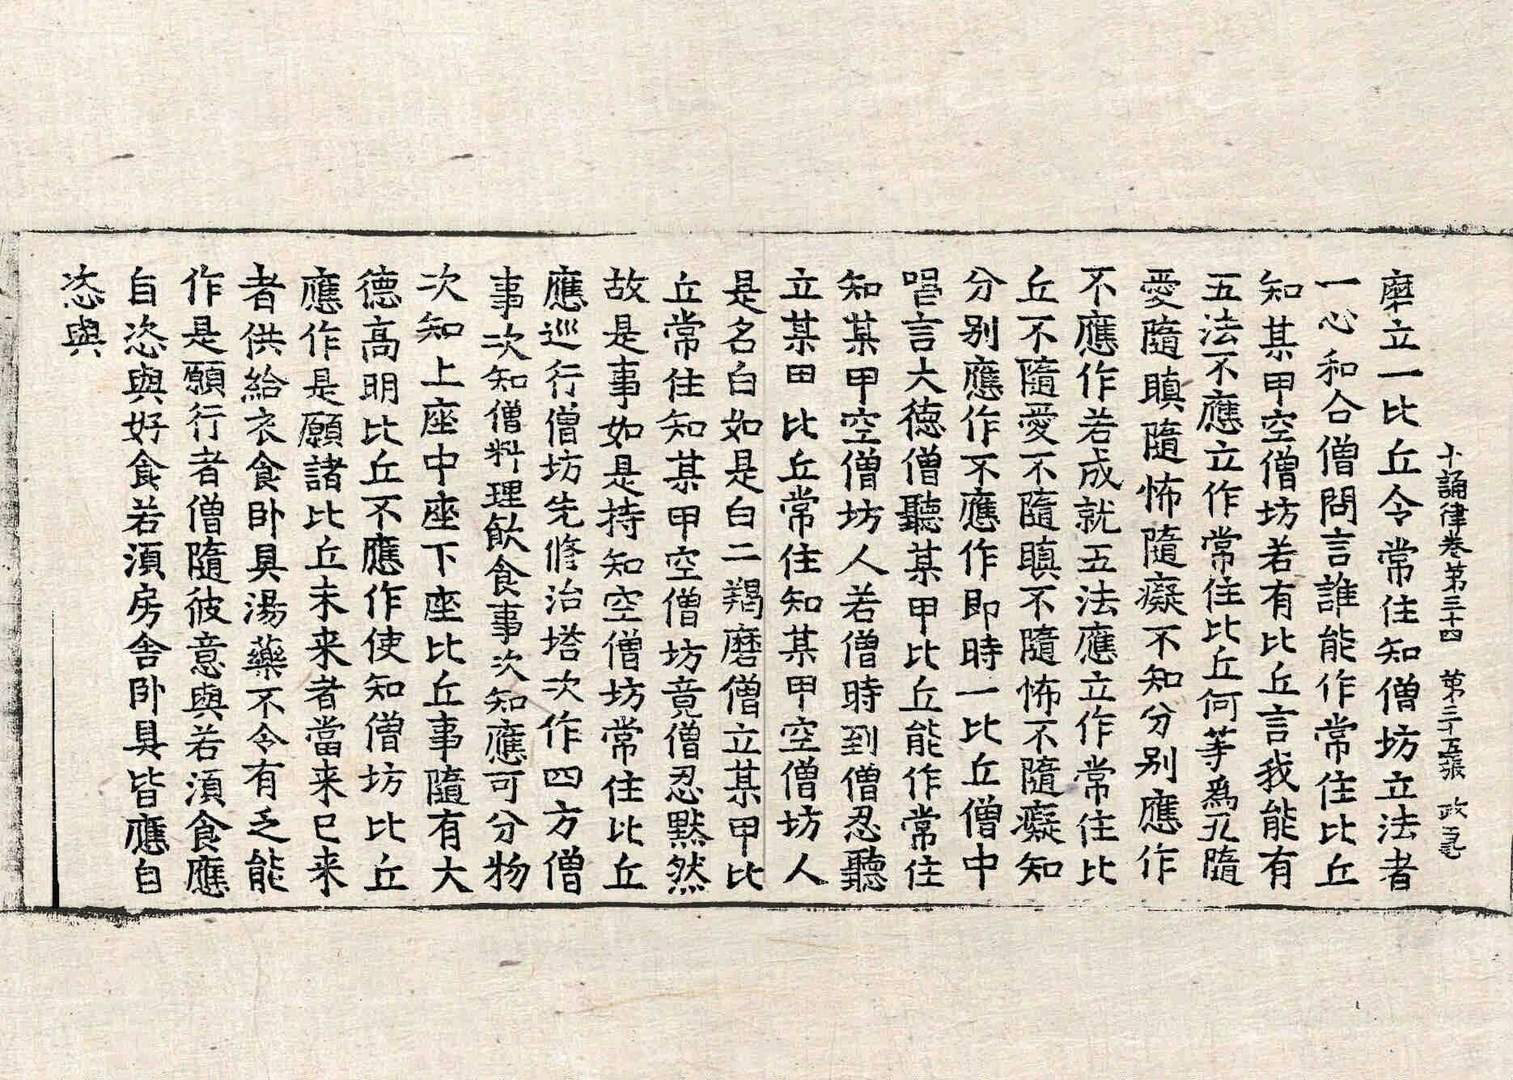 十誦律卷第三十四 第二十五張 政
磨立一比丘令常住知僧坊立法者
一心和合僧問言誰能作常住比丘
知某甲空僧坊若有比丘言我能有
五法不應立作常住比丘何等為五隨
愛隨瞋隨怖隨癡不知分別應作
不應作若成就五法應立作常住比
丘不隨愛不隨瞋不隨怖不隨癡知
分别應作不應作即時一比丘僧中
唱言大德僧聽某甲比丘能作常住
知某甲空僧坊人若僧時到僧忍聽
立某田比丘常住知某甲空僧坊人
是名白如是白二羯磨僧立某甲比
丘常住知某甲空僧坊竟僧忍黙然
故是事如是持知空僧坊常住比丘
應巡行僧坊先脩治塔次作四方僧
事次知僧料理飲食事次知應可分物
次知上座中座下座比丘事隨有大
德高明比丘不應作使知僧坊比丘
應作是願諸比丘未来者當来已来
者供給衣食卧具湯藥不令有乏能
作是願行者僧隨彼意與若湏食應
自恣與好食若湏房舎卧具皆應自
恣與